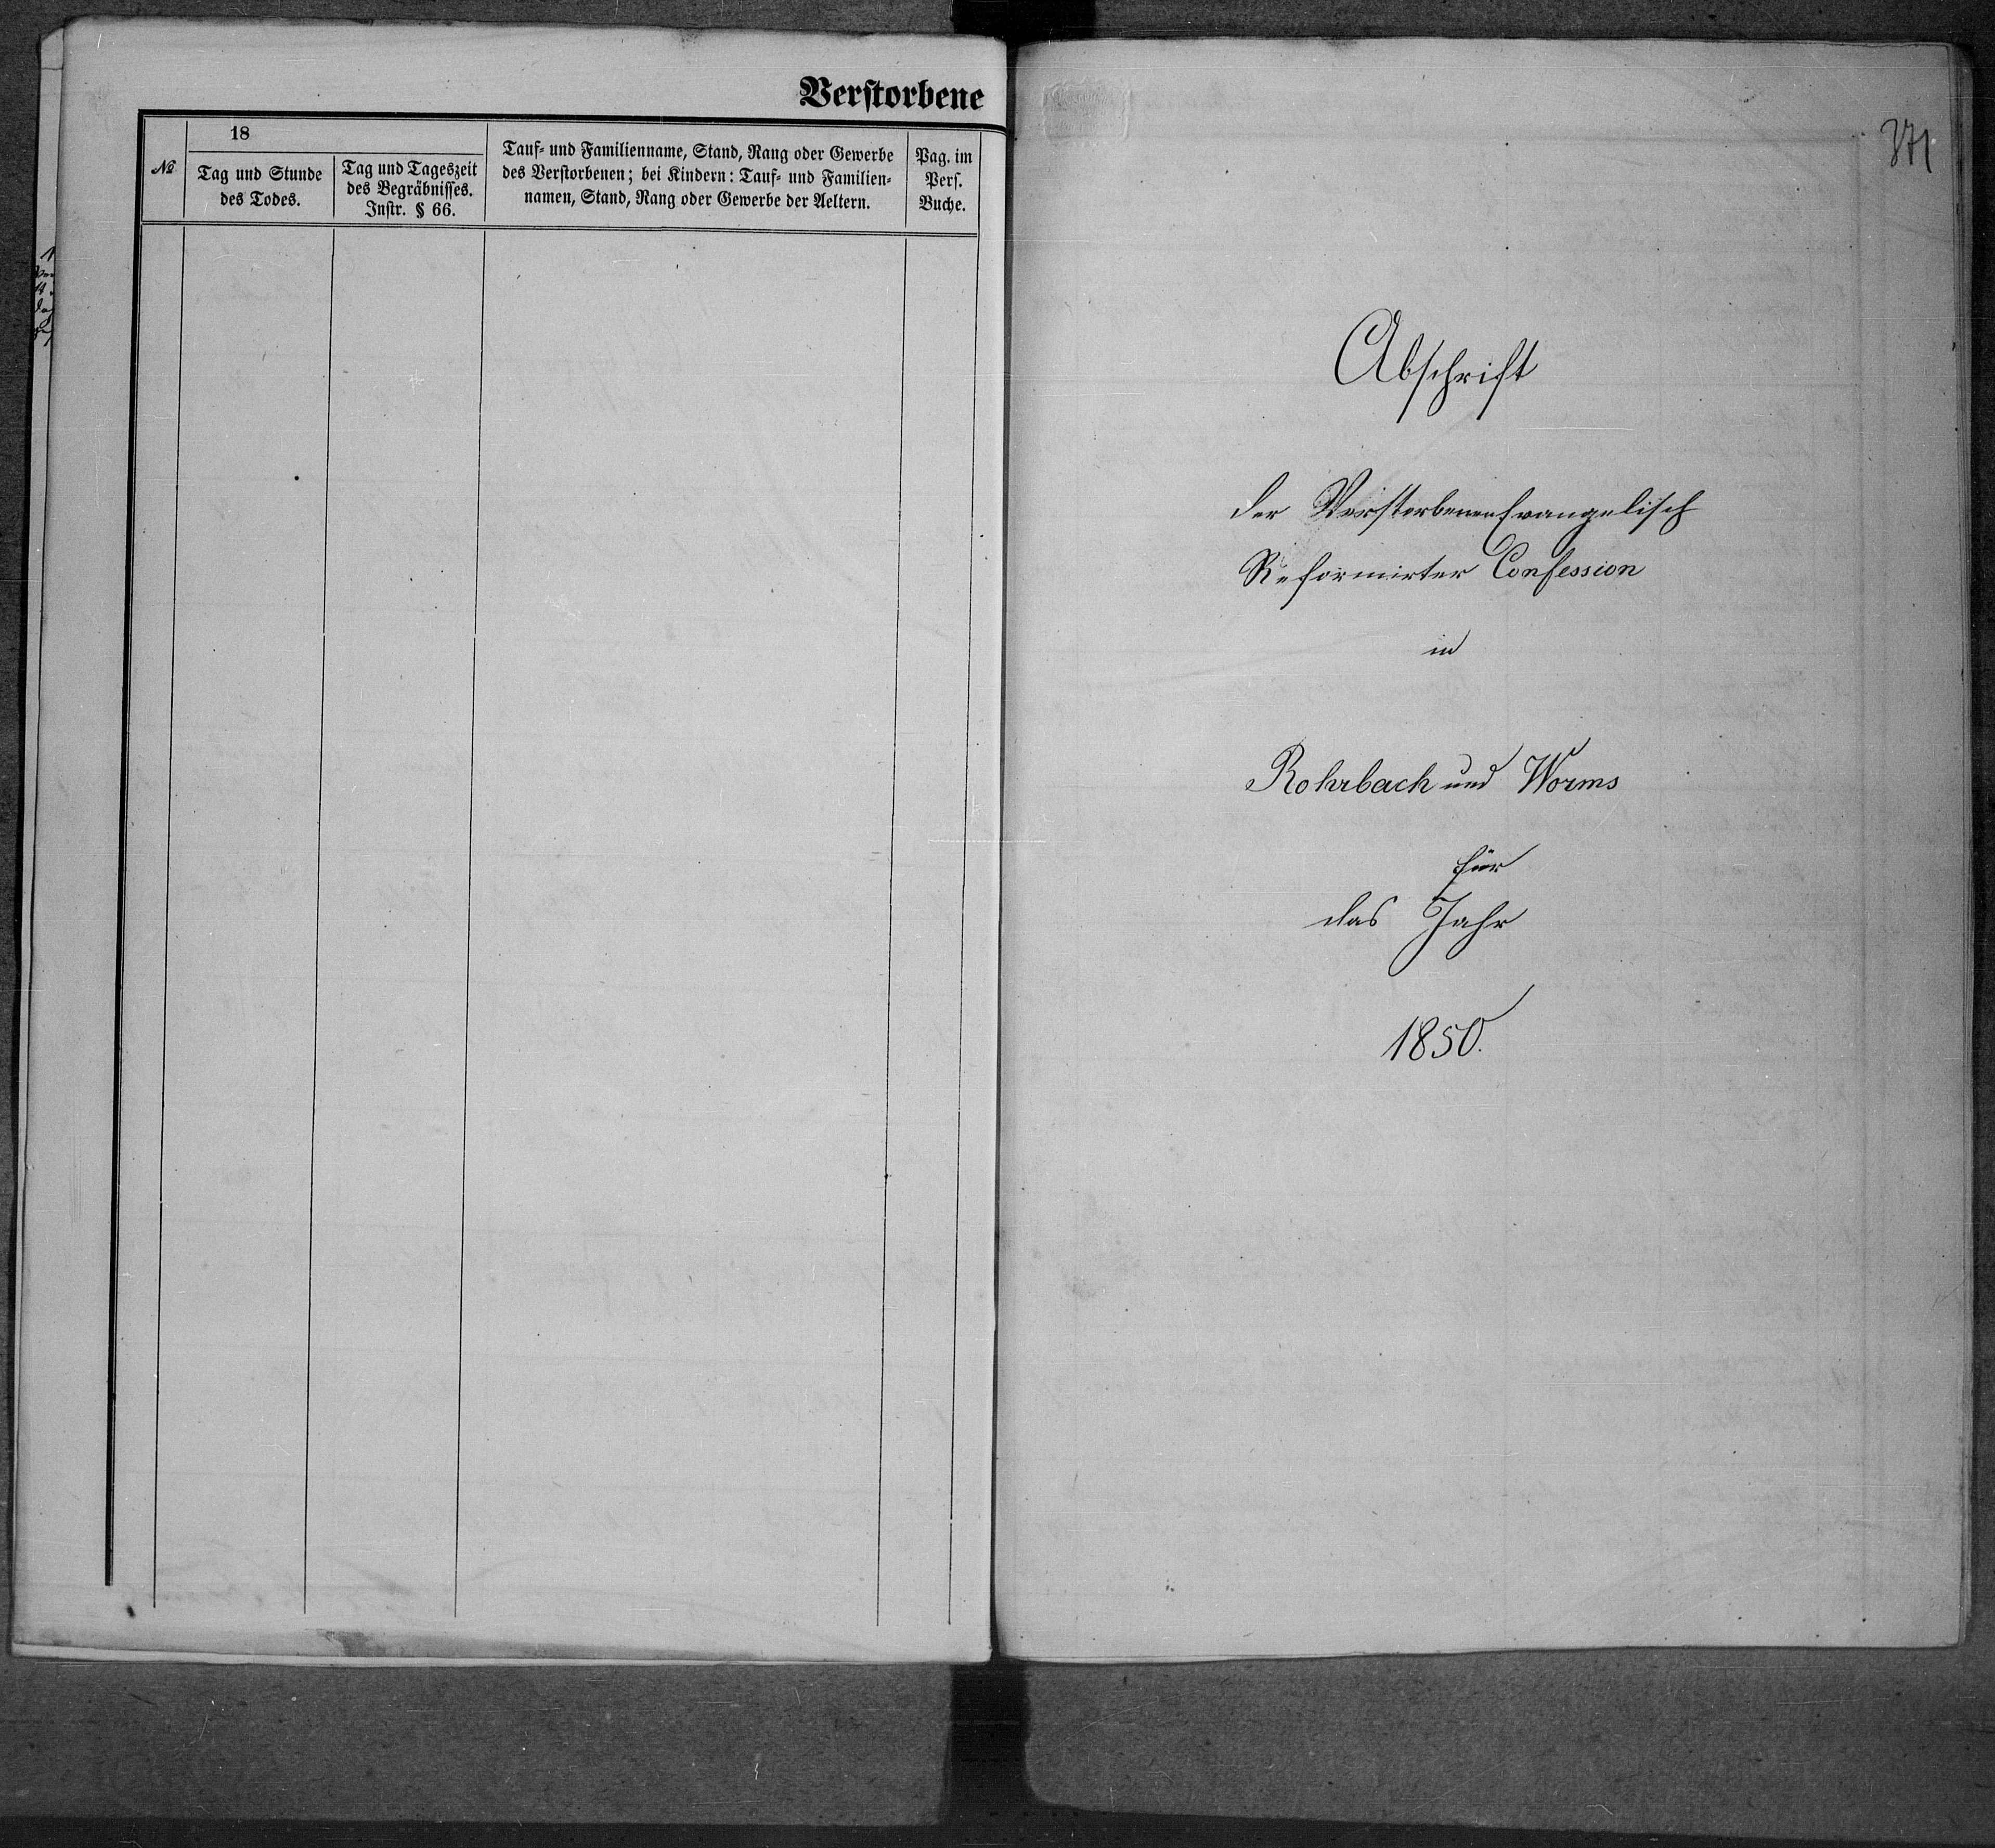 Verstorbene
18
№
Tag und Stunde
des Todes.
Tag und Tageszeit
des Begräbnisses.
Instr. § 66.
Tauf- und Familienname, Stand, Rang oder Gewerbe
des Verstorbenen; bei Kindern: Tauf- und Familien-
namen, Stand, Rang oder Gewerbe der Aeltern.
Pag. im
Pers.
Buche.
371
Abschrift
der Verstorbenen Evangelisch
Reformirter Confession
in
Rohrbach und Worms
für
das Jahr
1850.